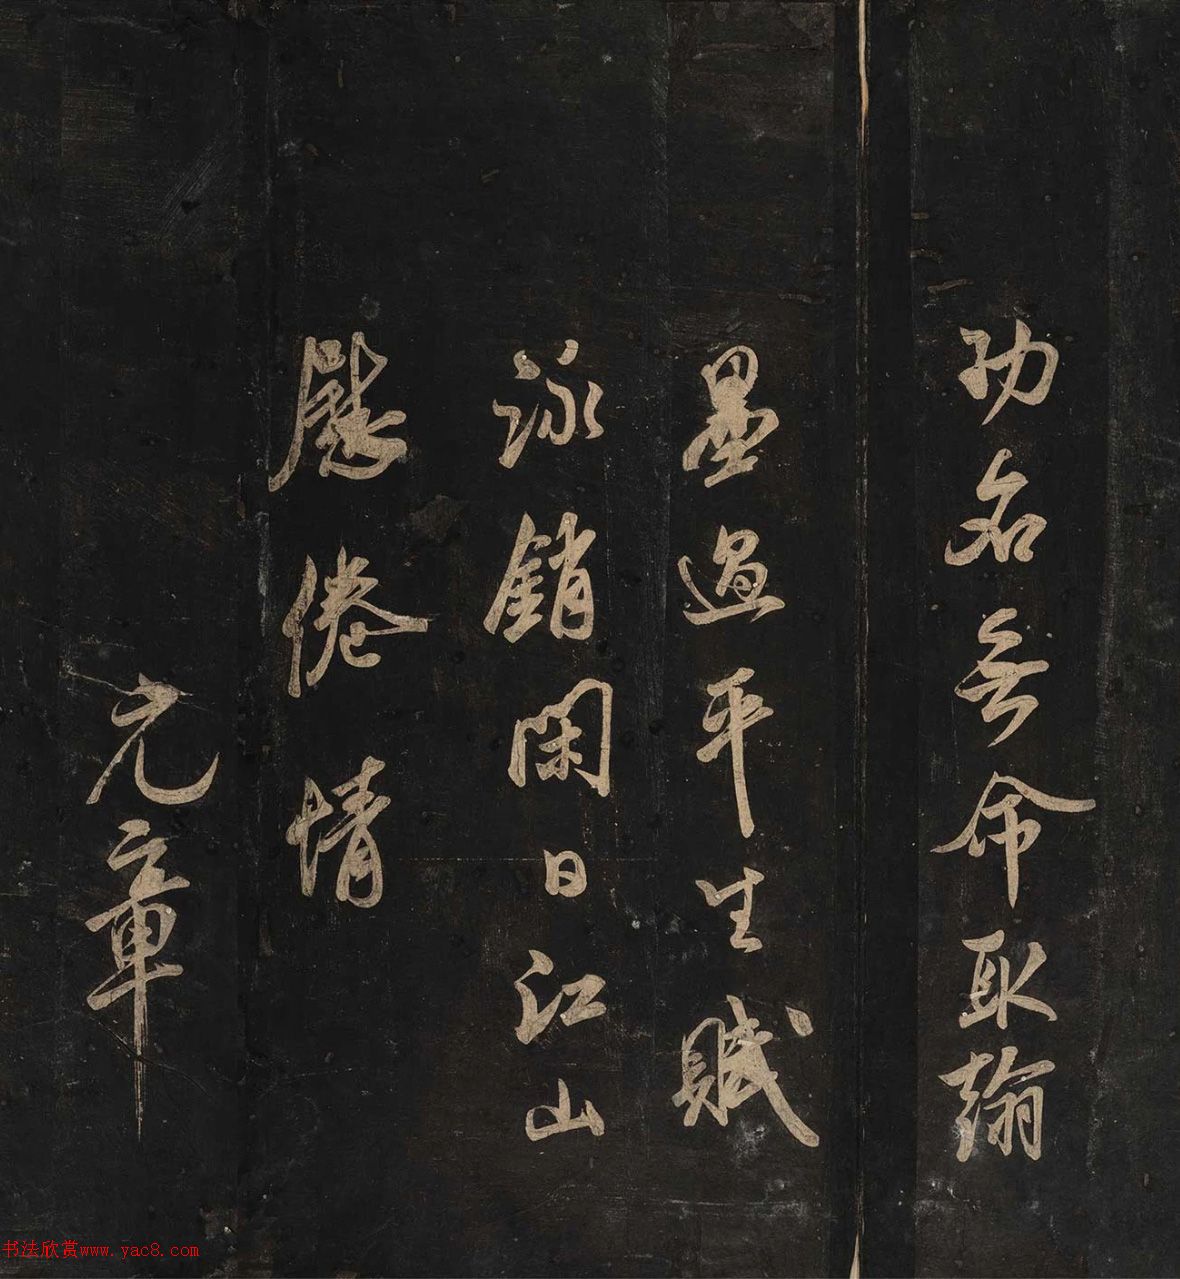 功名無命取翰
墨過平生賦
詠銷閑日江山
慰倦情
元章
书法欣赏www.yac8.com